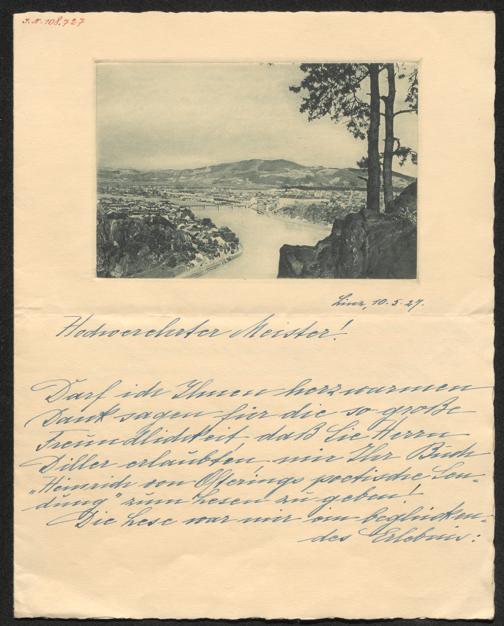 J.N. 108.727
Linz, 10.5.27.
Hochverehrter Meister!
Darf ich Ihnen herzwarmen
Dank sagen für die so große
Freundlichkeit, daß Sie Herrn
Diller erlaubten mir Ihr Buch
„Heinrich von Ofterings poetische Sen-
dung" zum Lesen zu geben!
Die Lese war mir ein beglücken-
des Erlebnis: